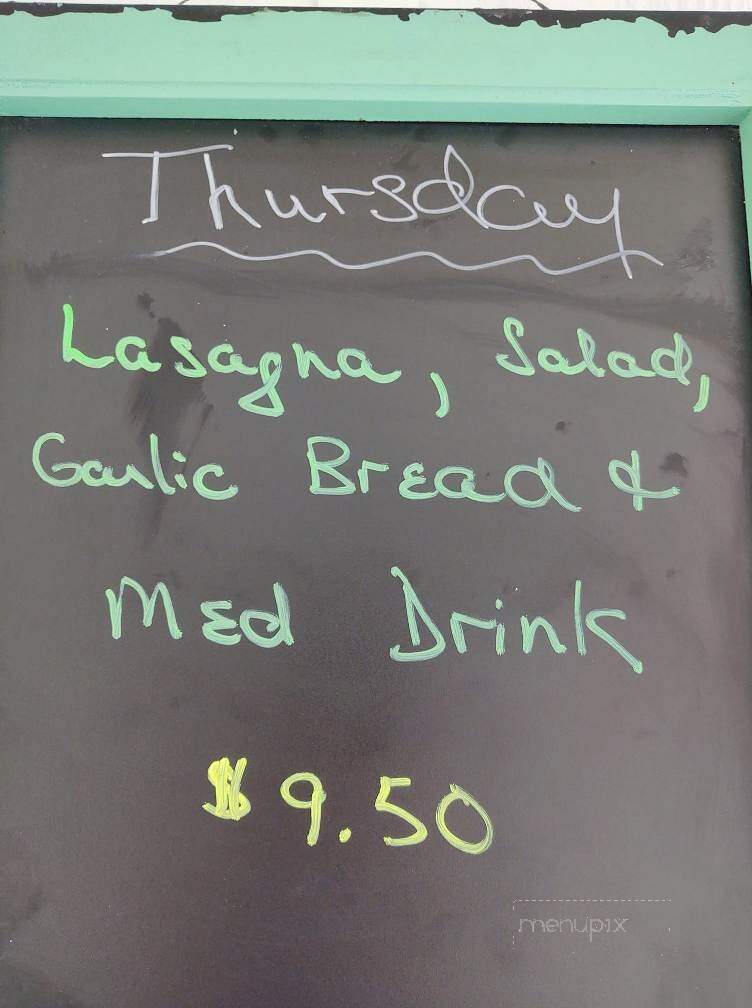 Thursday
Lasagna, Salad,
Garlic Bread &
Med Drink
$9.50
menupix